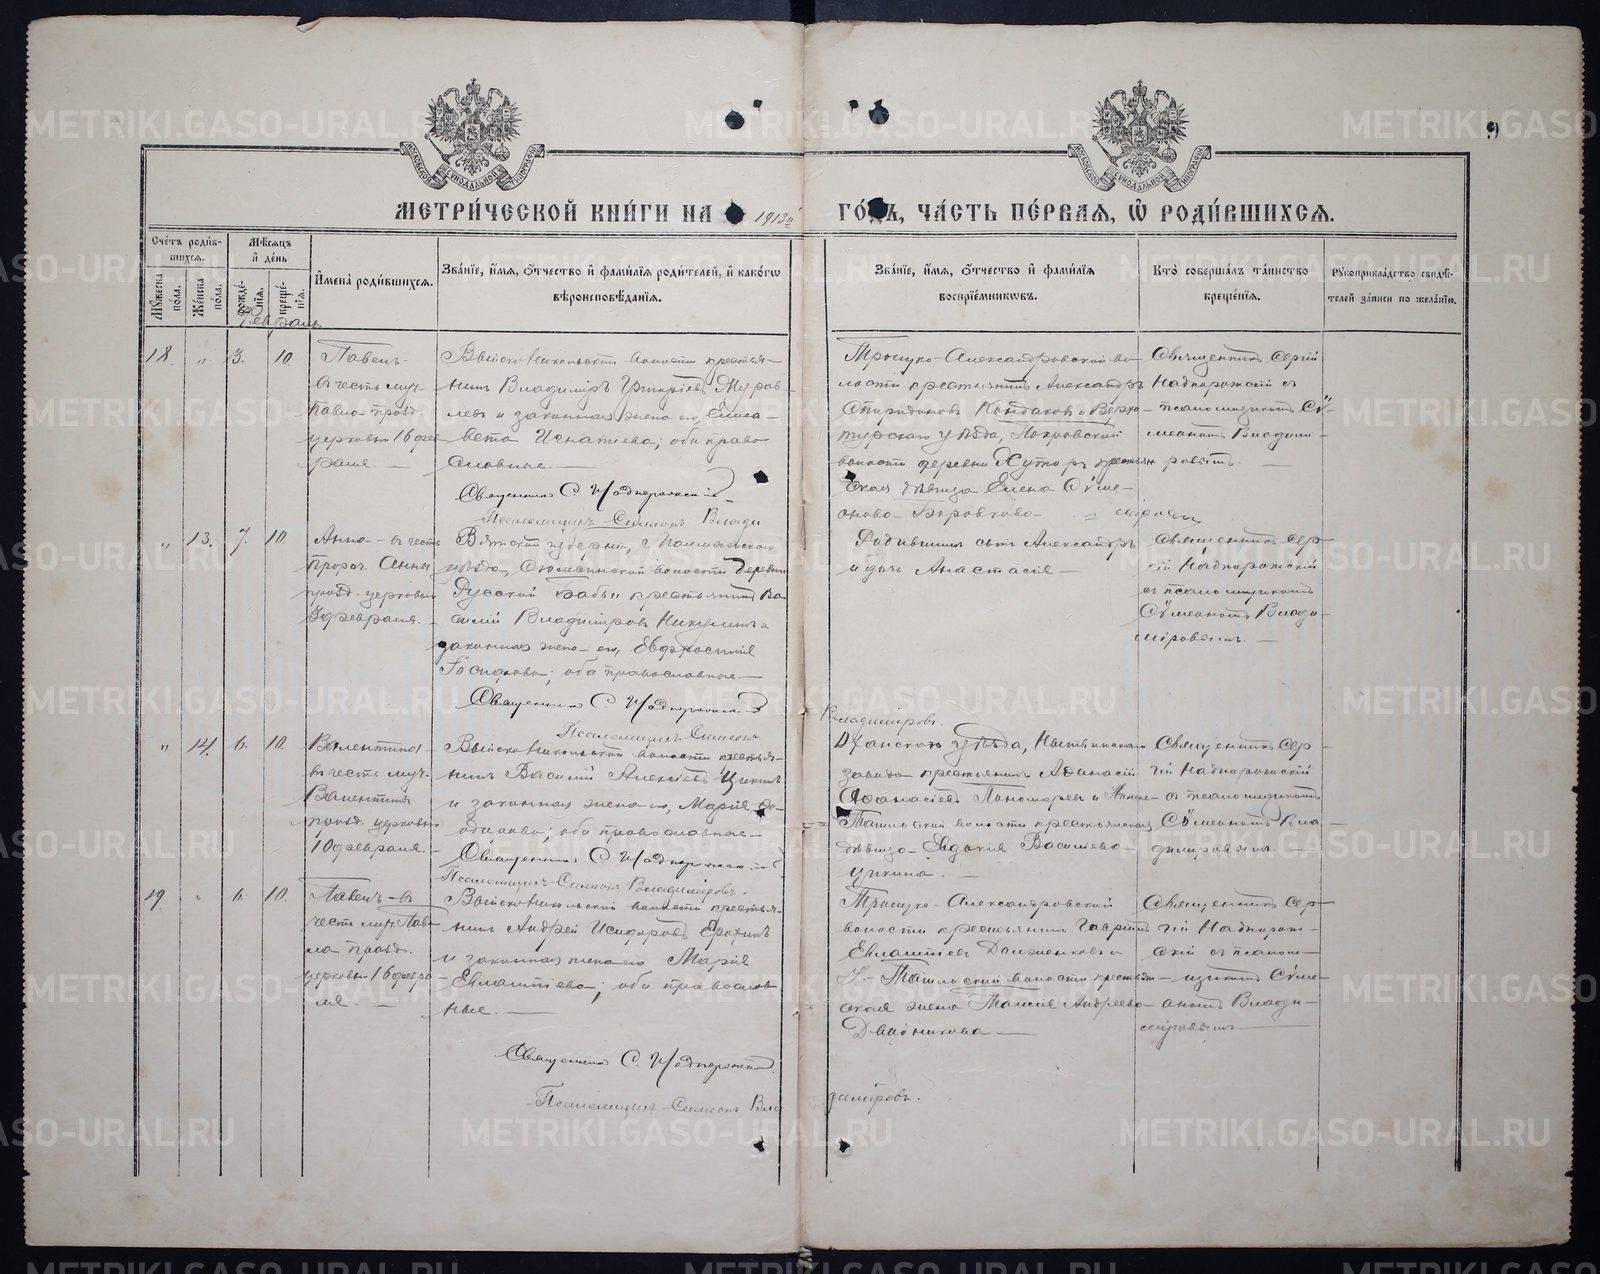 МЕТРИ́ЧЕСКОЙ КНИ́ГИ НА 1913й ГО́ДЪ, ЧА́СТЬ ПЕ́РВАЯ, Ѡ҆ РОДИ́ВШИХСЯ.
9
Сче́тъ роди́вшихся.
Мѣ́сяцъ и҆ де́нь
Мꙋ́жеска по́ла.
Же́нска по́ла.
рожде́нїя.
креще́нїя.
И҆мена̀ роди́вшихся.
Зва́нїе, и҆́мя, ѻ҆́тчество и҆ фами́лїя роди́телей, и҆ како́гѡ
вѣроисповѣ́данїя.
Зва́нїе, и҆́мя, ѻ҆́тчество и҆ фами́лїя
воспрїе́мникѡвъ.
Кто̀ соверша́лъ та́инство
креще́нїя.
Рꙋкоприкла́дство свидѣ́-
телей за́писи по жела́нїю.
Февраль
18. „ 3. 10.
Павелъ
въ честь муч.
Павла празд.
церковью 16 фев
раля. —
Владимiръ Григорiевъ Мурав-
левъ и законная жена его, Елиса-
вета Игнатiева; оба право
славные. —
Священникъ С. Надпорожскiй
Псаломщикъ Симеонъ Влади
Троицко-Александровской во-
лости крестьянинъ Александръ
Спиридоновъ Кондаковъ и Верхо-
турскаго уѣзда, Покровской
волости деревни Хуторъ крестьян
ская дѣвица Елена Сѵме-
онова
Священникъ Сергiй
Надпорожскiй съ
псаломщикомъ Сѵ-
меономъ Владимi-
ровымъ. —
„ 13. 7. 10.
Анна — въ честь
Пророч. Анны
празд. церковью
3 февраля. —
Вятской губернiи,
уѣзда, волости деревни
Русской крестьянинъ Ва
силiй Владимiровъ Никулинъ и
законная жена его, Евфросинiя
Iосифова; оба православные —
Священникъ С. Надпорожскiй
Псаломщикъ Симеонъ
Владимiровъ.
Родившихъ сынъ Александръ
и дочь Анастасiя —
Священникъ Сер-
гiй Надпорожскiй
съ псаломщикомъ
Сѵмеономъ Влади-
мiровымъ. —
„ 14. 6. 10.
Валентина
въ честь муч.
Валентины
празд. церковью
10 февраля. —
волости крестья-
нинъ Василiй Алексiевъ Цикинъ
и законная жена его, Марiя Ѳе-
одорова; оба православные —
Священникъ С. Надпорожскiй
Псаломщикъ Симеонъ Владимiровъ.
Оханскаго уѣзда, Нытвинскаго
завода крестьянинъ Аѳанасiй
Аѳанасiевъ Пономаревъ и Нижне-
Тагильской волости крестьянская
дѣвица Евдокiя Васильева
Цикина. —
Священникъ Сер-
гiй Надпорожскiй
съ псаломщикомъ
Сѵмеономъ Вла-
димiровымъ. —
19. „ 6. 10.
Павелъ — въ
честь муч. Пав-
ла празд.
церковью 16 февра
ля. —
волости крестья-
нинъ Андрей Исидоровъ Ерохинъ
и законная жена его Марiя
оба православ
ные. —
Священникъ С. Надпорожскiй
Псаломщикъ Симеонъ Вла
димiровъ.
Троицко-Александровской
волости крестьянинъ Гаврiилъ
Долженковъ и
Н-Тагильской волости крестьян-
ская жена Таисiя Андреева
Двойникова —
Священникъ Сер-
гiй Надпорож-
скiй съ псалом-
щикомъ Сѵме-
ономъ Влади-
мiровымъ —
METRIKI.GASO-URAL.RU